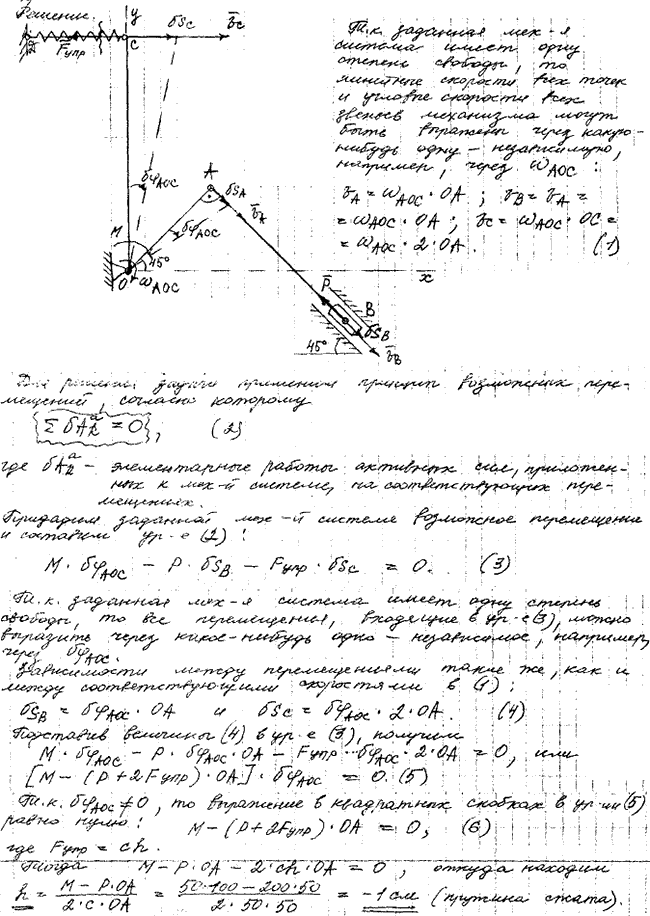 Решение.
y
δSc
v̄c
Fупр
c
Т.к. заданная мех-я
система имеет одну
степень свободы, то
линейные скорости всех точек
и угловые скорости всех
звеньев механизма могут
быть выражены через какую-
нибудь одну – независимую,
например, через ωAOC :
vA = ωAOC · OA ; vB = vA =
= ωAOC · OA ; vc = ωAOC · OC =
= ωAOC · 2 · OA . (1)
δφAOC
A
δSA
v̄A
δφAOC
M
45°
O
ωAOC
x
P̄
B
δSB
v̄B
45°
Для решения задачи применим принцип возможных пере-
мещений, согласно которому
Σ δAᵃk = 0 , (2)
где δAᵃk – элементарные работы активных сил, приложен-
ных к мех-й системе, на соответствующих пере-
мещениях.
Придадим заданной мех-й системе возможное перемещение
и составим ур-е (2) :
M · δφAOC – P · δSB – Fупр · δSc = 0. (3)
Т.к. заданная мех-я система имеет одну степень
свободы, то все перемещения, входящие в ур-е (3), можно
выразить через какое-нибудь одно – независимое, например,
через δφAOC.
Зависимости между перемещениями такие же, как и
между соответствующими скоростями в (1) :
δSB = δφAOC · OA и δSc = δφAOC · 2 · OA . (4)
Подставив величины (4) в ур-е (3), получим
M · δφAOC – P · δφAOC · OA – Fупр · δφAOC · 2 · OA = 0, или
[M – (P + 2Fупр) · OA] · δφAOC = 0. (5)
Т.к. δφAOC ≠ 0, то выражение в квадратных скобках в ур-ии (5)
равно нулю : M – (P + 2Fупр) · OA = 0, (6)
где Fупр = ch.
Тогда M – P · OA – 2 · ch · OA = 0 , откуда находим
h = (M – P · OA) / (2 · c · OA) = (50 · 100 – 200 · 50) / (2 · 50 · 50) = –1 см (пружина сжата).